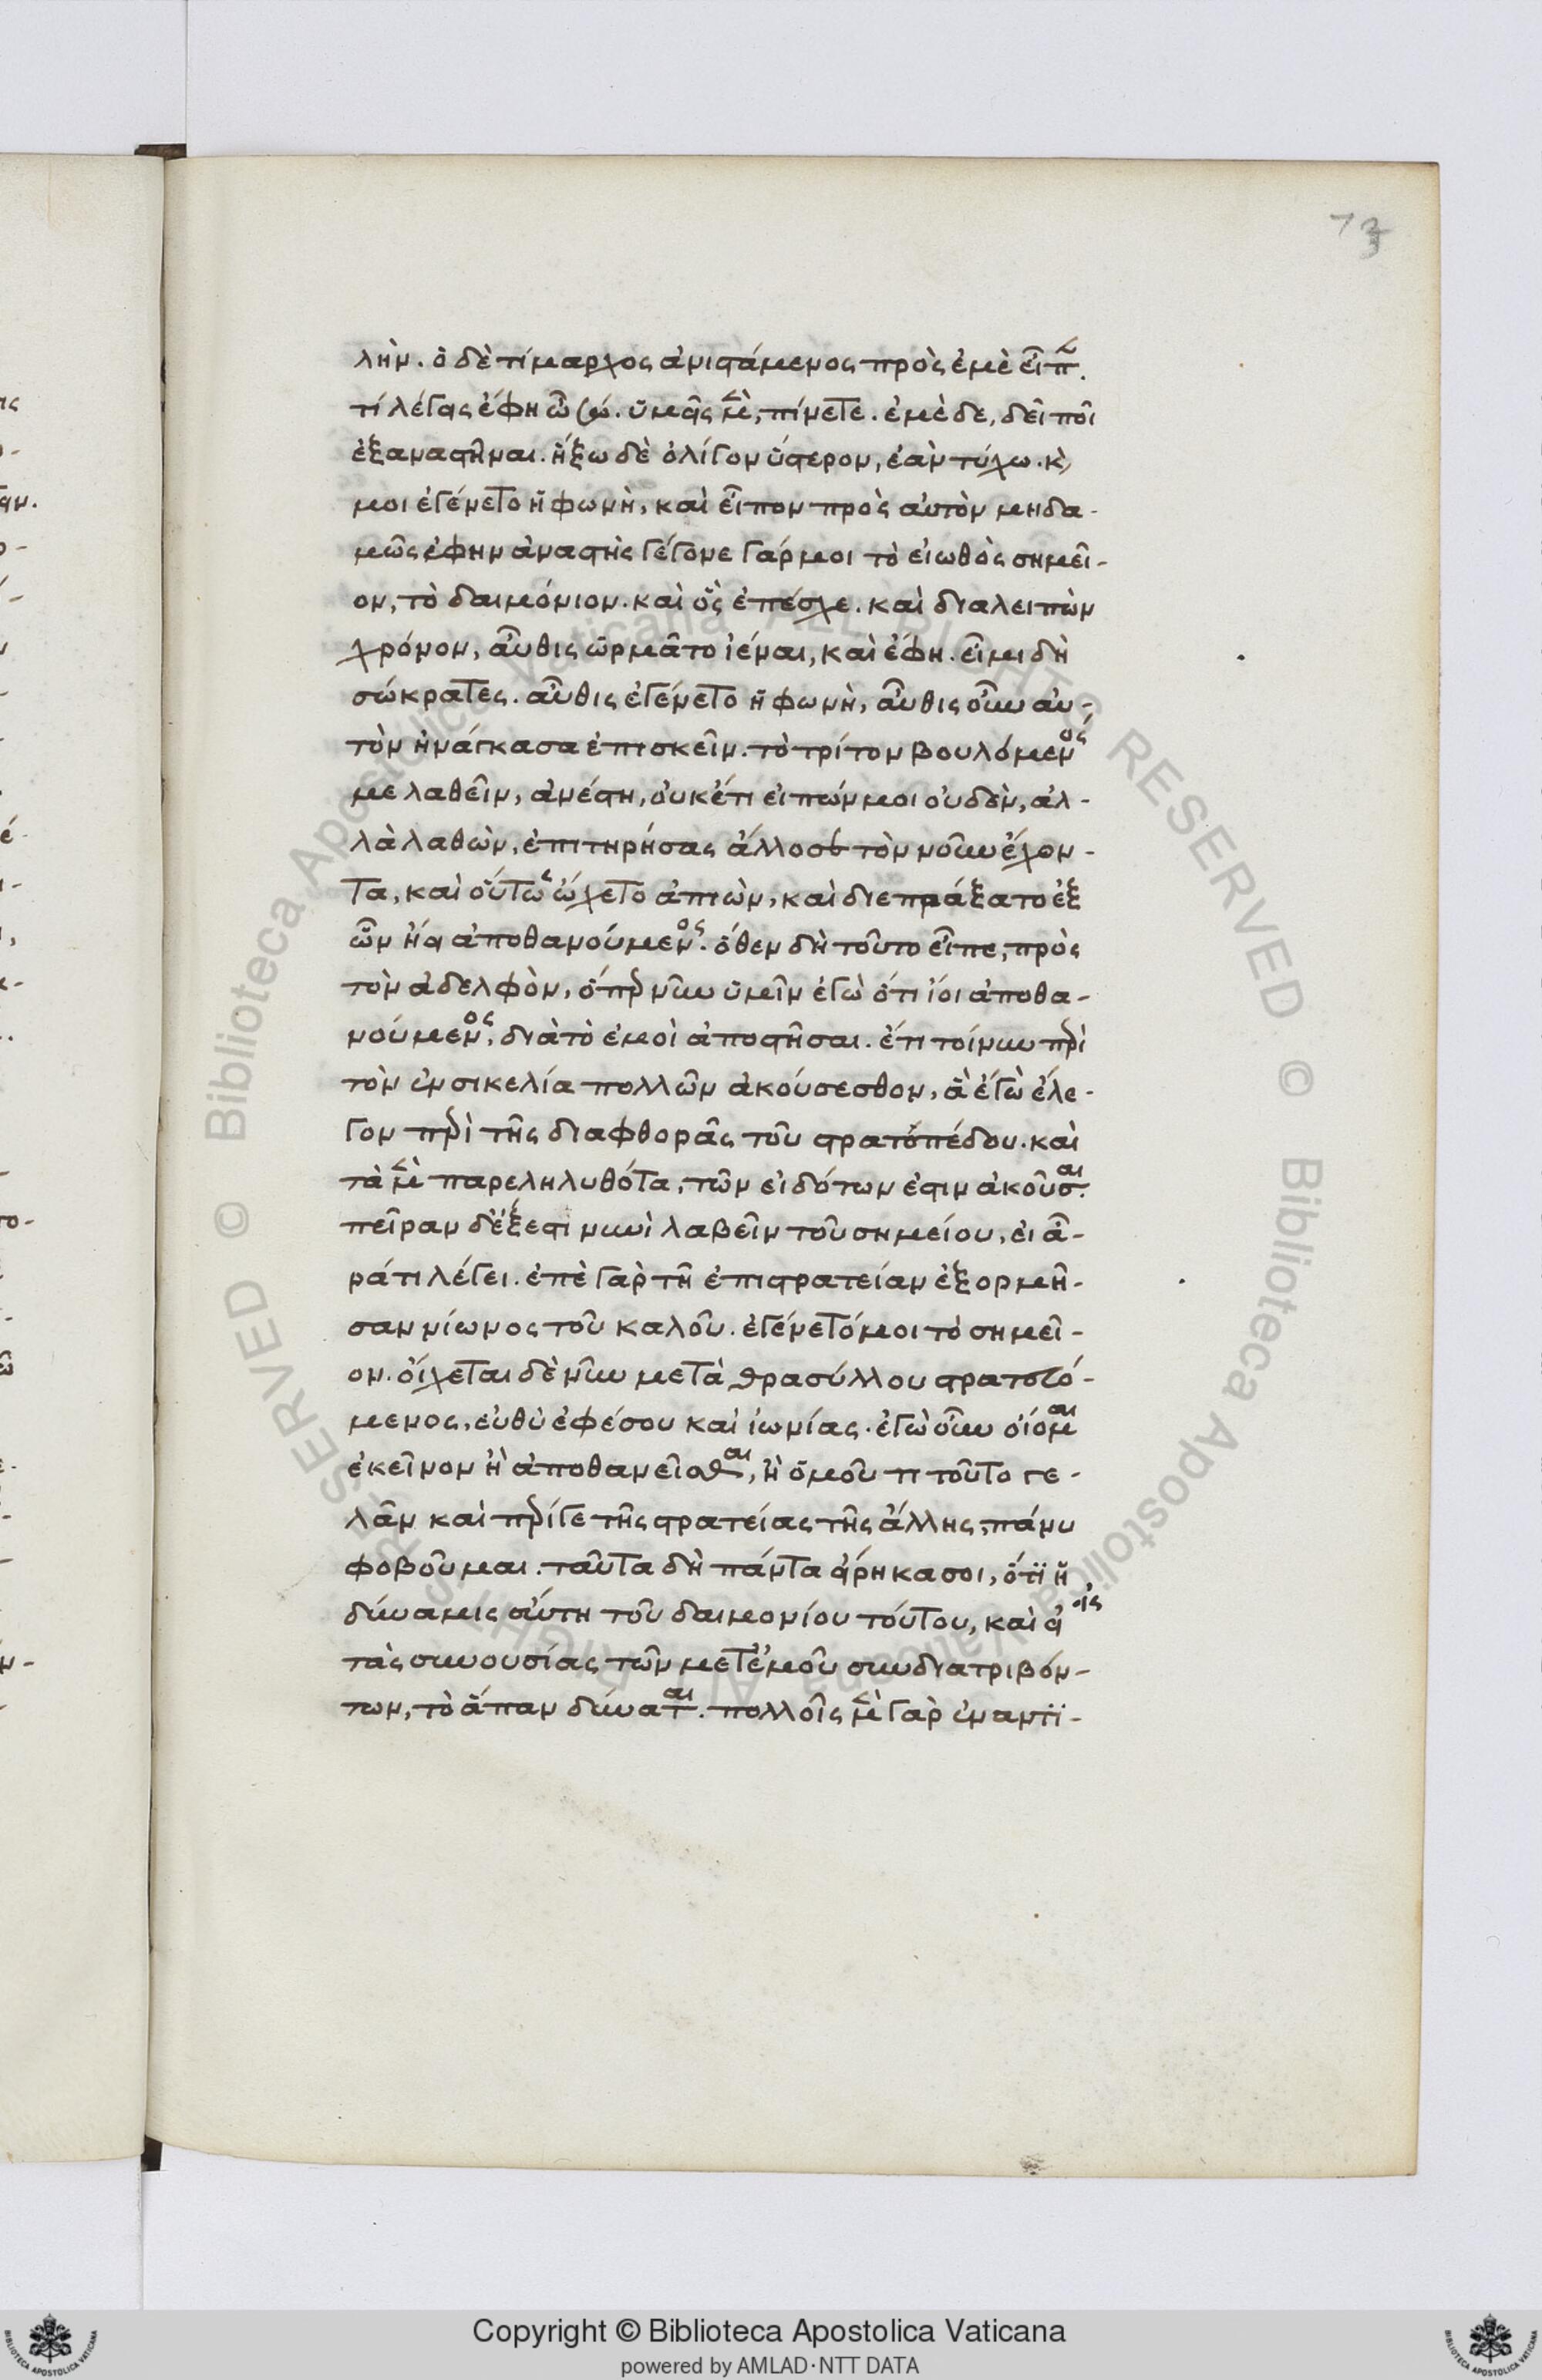 73
λὴν. ὁ δὲ τίμαρχος ἀνιστάμενος πρὸς ἐμὲ εἶπ.
τί λέγεις ἔφη ὦ σώ. ὑμεῖς μὲν, πίνετε. ἐμὲ δε, δεῖ ποῖ
ἐξαναστῆναι. ἥξω δὲ ὀλίγον ὕστερον, ἐὰν τύχω. κὶ
μοι ἐγένετο ἡ φωνὴ, καὶ εἶπον πρὸς αὐτὸν μηδα-
μῶς ἔφην ἀναστῆς γέγονε γάρ μοι τὸ εἰωθὸς σημεῖ-
ον, τὸ δαιμόνιον. καὶ ὃς ἐπέσχε. καὶ διαλειπὼν
χρόνον, αὖθις ὡρμᾶτο ἰέναι, καὶ ἔφη. εἶμι δὴ
σώκρατες. αὖθις ἐγένετο ἡ φωνὴ, αὖθις οὖν αὐ-
τὸν ἠνάγκασα ἐπισχεῖν. τὸ τρίτον βουλόμενος
με λαθεῖν, ἀνέστη, οὐκέτι εἰπών μοι οὐδὲν, ἀλ-
λὰ λαθὼν, ἐπιτηρήσας ἄλλοσε τὸν νοῦν ἔχον-
τα, καὶ οὕτως ὤχετο ἀπιὼν, καὶ διεπράξατο ἐξ
ὧν ᾔει ἀποθανούμενος. ὅθεν δὴ τοῦτο εἶπε, πρὸς
τὸν ἀδελφὸν, ὅπερ νῦν ὑμῖν ἐγὼ ὅτι ἴοι ἀποθα-
νούμενος, διὰ τὸ ἐμοὶ ἀπιστῆσαι. ἔτι τοίνυν περὶ
τὸν ἐν σικελία πολλῶν ἀκούσεσθον, ἃ ἐγὼ ἔλε-
γον περὶ τῆς διαφθορᾶς τοῦ στρατοπέδου. καὶ
τὰ μὲν παρεληλυθότα, τῶν εἰδότων ἔστιν ἀκοῦσαι.
πεῖραν δ' ἔξεστι νυνὶ λαβεῖν τοῦ σημείου, εἰ ἄ-
ρά τι λέγει. ἐπὲ γὰρ τῆ ἐπιστρατείαν ἐξορμῆ-
σαν νίωνος τοῦ καλοῦ. ἐγένετό μοι τὸ σημεῖ-
ον. οἴχεται δὲ νῦν μετὰ θρασύλλου στρατευό-
μενος, εὐθὺ ἐφέσου καὶ ἰωνίας. ἐγὼ οὖν οἴομαι
ἐκεῖνον ἢ ἀποθανεῖσθαι, ἢ ὁμοῦ τι τοῦτο γε-
λᾶν καὶ περί γε τῆς στρατείας τῆς ἄλλης, πάνυ
φοβοῦμαι. ταῦτα δὴ πάντα εἴρηκα σοι, ὅτι ἡ
δύναμις αὕτη τοῦ δαιμονίου τούτου, καὶ εἰς
τὰς συνουσίας τῶν μετ' ἐμοῦ συνδιατριβόν-
των, τὸ ἅπαν δύναται. πολλοῖς μὲν γὰρ ἐναντι-
Copyright © Biblioteca Apostolica Vaticana
powered by AMLAD·NTT DATA